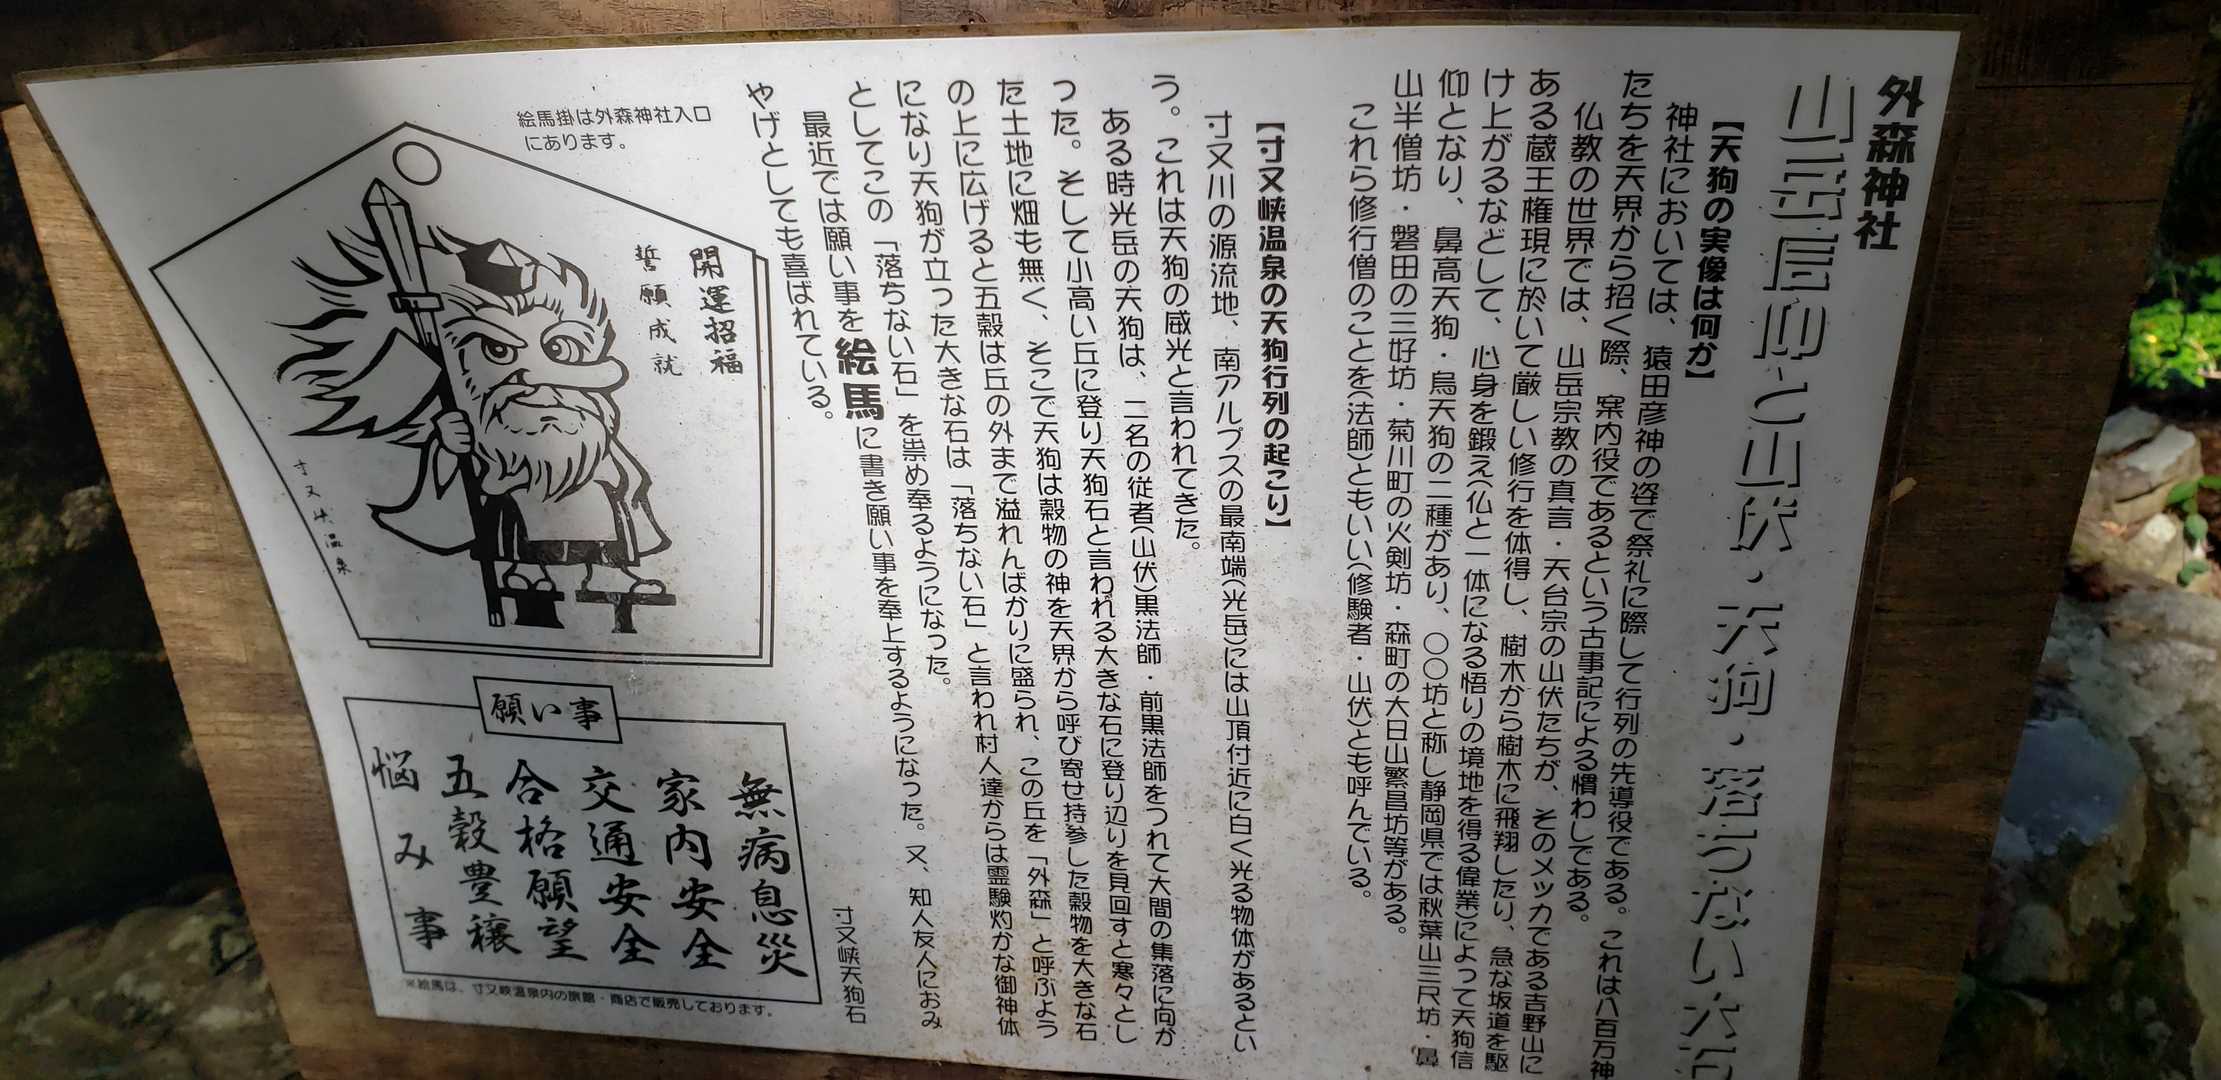 外森神社
山岳信仰と山伏・天狗・落ちない大石
【天狗の実像は何か】
神社においては、猿田彦神の姿で祭礼に際して行列の先導役である。これは八百万神
たちを天界から招く際、案内役であるという古事記による慣わしである。
仏教の世界では、山岳宗教の真言・天台宗の山伏たちが、そのメッカである吉野山に
ある蔵王権現に於いて厳しい修行を体得し、樹木から樹木に飛翔したり、急な坂道を駆
け上がるなどして、心身を鍛え(仏と一体になる悟りの境地を得る偉業)によって天狗信
仰となり、鼻高天狗・烏天狗の二種があり、〇〇坊と称し静岡県では秋葉山三尺坊・鼻
山半僧坊・磐田の三好坊・菊川町の火剣坊・森町の大日山繁昌坊等がある。
これら修行僧のことを(法師)ともいい(修験者・山伏)とも呼んでいる。
【寸又峡温泉の天狗行列の起こり】
寸又川の源流地、南アルプスの最南端(光岳)には山頂付近に白く光る物体があるとい
う。これは天狗の威光と言われてきた。
ある時光岳の天狗は、二名の従者(山伏)黒法師・前黒法師をつれて大間の集落に向か
った。そして小高い丘に登り天狗石と言われる大きな石に登り辺りを見回すと寒々とし
た土地に畑も無く、そこで天狗は穀物の神を天界から呼び寄せ持参した穀物を大きな石
の上に広げると五穀は丘の外まで溢れんばかりに盛られ、この丘を「外森」と呼ぶよう
になり天狗が立った大きな石は「落ちない石」と言われ村人達からは霊験灼かな御神体
としてこの「落ちない石」を祟め奉るようになった。
最近では願い事を絵馬に書き願い事を奉上するようになった。又、知人友人におみ
やげとしても喜ばれている。
寸又峡天狗石
絵馬掛は外森神社入口
にあります。
開運招福
誓願成就
寸又峡温泉
願い事
無病息災
家内安全
交通安全
合格願望
五穀豊穣
悩み事
※絵馬は、寸又峡温泉内の旅館・商店で販売しております。